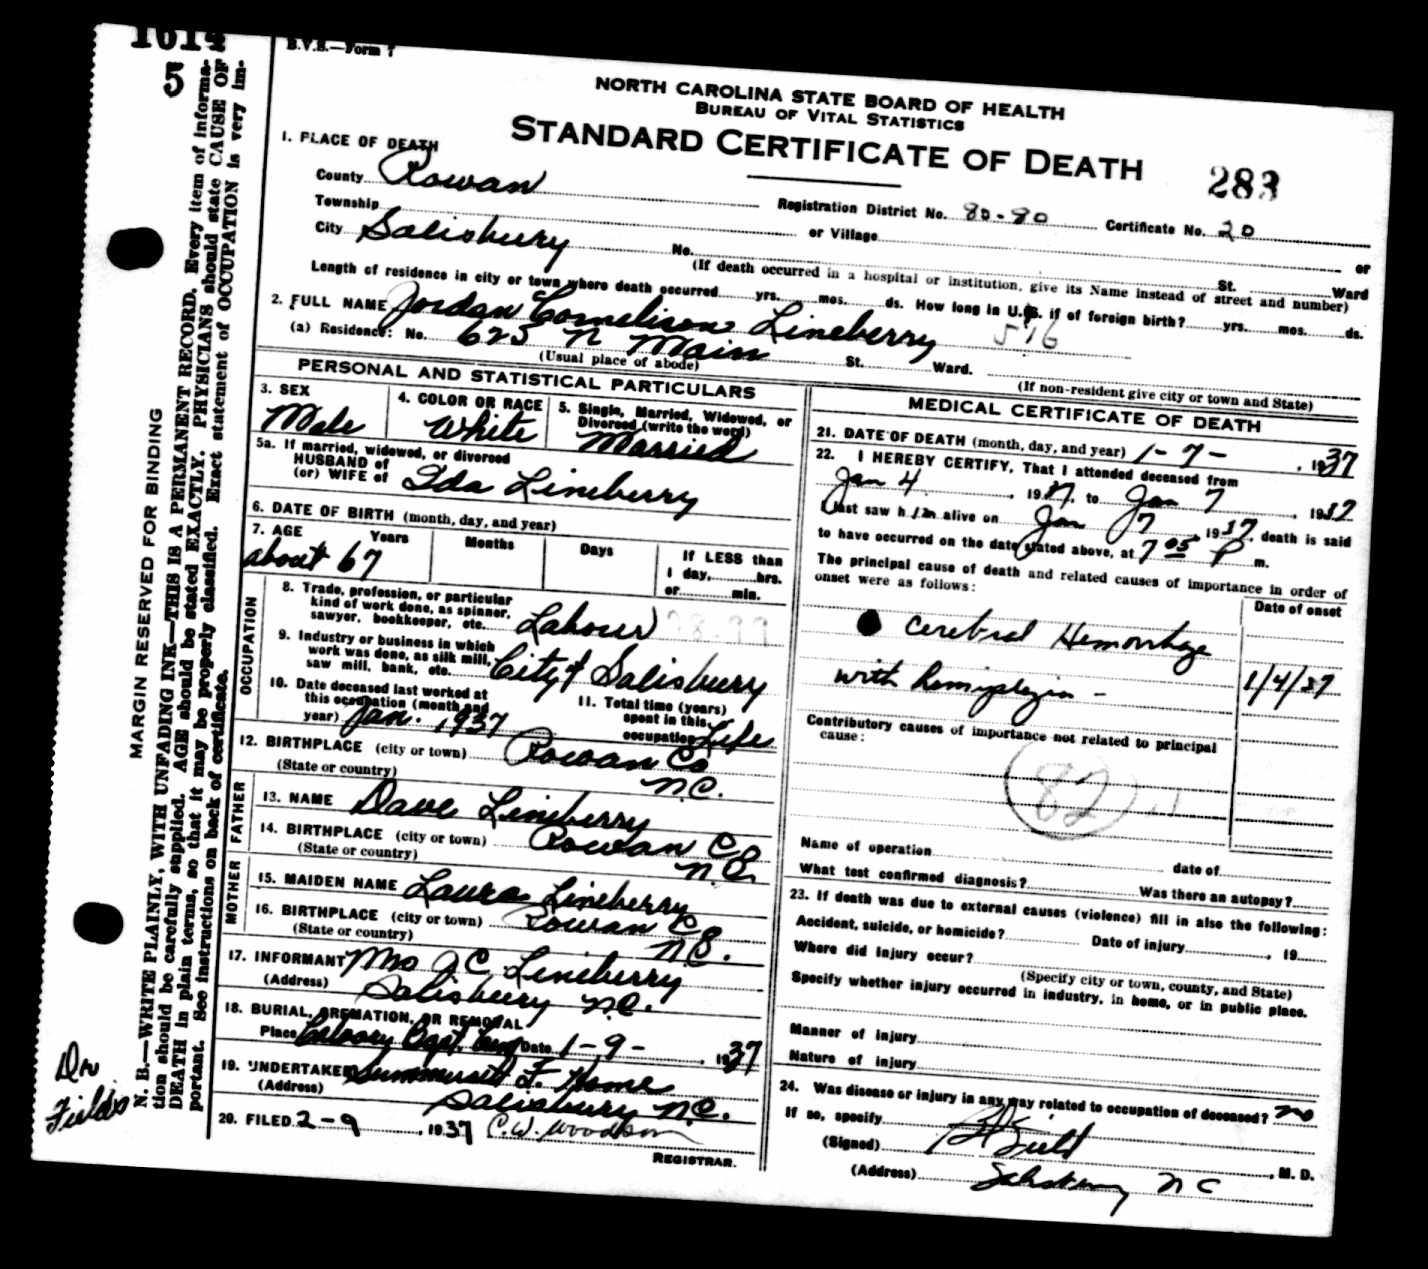 1614
5
B.V.S.—Form 7
NORTH CAROLINA STATE BOARD OF HEALTH
BUREAU OF VITAL STATISTICS
STANDARD CERTIFICATE OF DEATH
283
1. PLACE OF DEATH
County Rowan
Registration District No. 80-80 Certificate No. 20
Township or Village
City Salisbury No. St. Ward
or
(If death occurred in a hospital or institution, give its Name instead of street and number)
Length of residence in city or town where death occurred yrs. mos. ds. How long in U.S. if of foreign birth? yrs. mos. ds.
2. FULL NAME Jordan Cornelison Lineberry 516
(a) Residence: No. 625 N Main St. Ward.
(Usual place of abode) (If non-resident give city or town and State)
PERSONAL AND STATISTICAL PARTICULARS
3. SEX 4. COLOR OR RACE 5. Single, Married, Widowed, or
Divorced (write the word)
Male White Married
5a. If married, widowed, or divorced
HUSBAND of
(or) WIFE of Ida Lineberry
6. DATE OF BIRTH (month, day, and year)
7. AGE Years Months Days If LESS than
1 day, hrs.
or min.
about 67
OCCUPATION
8. Trade, profession, or particular
kind of work done, as spinner,
sawyer, bookkeeper, etc. Labour
9. Industry or business in which
work was done, as silk mill,
saw mill, bank, etc. City of Salisbury
10. Date deceased last worked at
this occupation (month and
year) Jan. 1937
11. Total time (years)
spent in this
occupation Life
12. BIRTHPLACE (city or town) Rowan Co
(State or country) N.C.
FATHER
13. NAME Dave Lineberry
14. BIRTHPLACE (city or town) Rowan Co
(State or country) N.C.
MOTHER
15. MAIDEN NAME Laura Lineberry
16. BIRTHPLACE (city or town) Rowan Co
(State or country) N.C.
17. INFORMANT Mrs J C Lineberry
(Address) Salisbury N.C.
18. BURIAL, CREMATION, OR REMOVAL
Place Calvary Bapt. Cem Date 1-9-, 1937
19. UNDERTAKER Summersett F. Home
(Address) Salisbury N.C.
20. FILED 2-9, 1937 C.W. Woodson
REGISTRAR.
MEDICAL CERTIFICATE OF DEATH
21. DATE OF DEATH (month, day, and year) 1-7-, 1937
22. I HEREBY CERTIFY, That I attended deceased from
Jan 4, 1937, to Jan 7, 1937
I last saw him alive on Jan 7, 1937, death is said
to have occurred on the date stated above, at 7 05 P m.
The principal cause of death and related causes of importance in order of
onset were as follows:
Date of onset
Cerebral Hemorrhage
with hemiplegia - 1/4/37
Contributory causes of importance not related to principal
cause:
82
Name of operation date of
What test confirmed diagnosis? Was there an autopsy?
23. If death was due to external causes (violence) fill in also the following:
Accident, suicide, or homicide? Date of injury , 19
Where did injury occur?
(Specify city or town, county, and State)
Specify whether injury occurred in industry, in home, or in public place.
Manner of injury
Nature of injury
24. Was disease or injury in any way related to occupation of deceased? no
If so, specify
(Signed) , M. D.
(Address) Salisbury N C
MARGIN RESERVED FOR BINDING
N. B.—WRITE PLAINLY, WITH UNFADING INK—THIS IS A PERMANENT RECORD. Every item of informa-
tion should be carefully supplied. AGE should be stated EXACTLY. PHYSICIANS should state CAUSE OF
DEATH in plain terms, so that it may be properly classified. Exact statement of OCCUPATION is very im-
portant. See instructions on back of certificate.
Dr
Fields